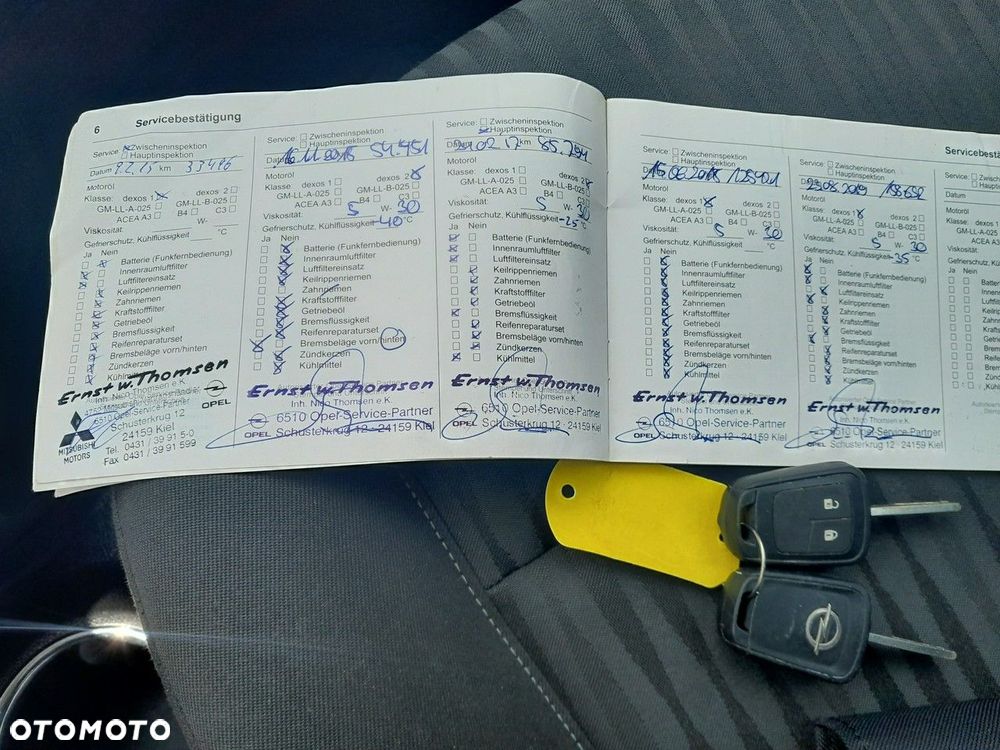 6 Servicebestätigung
Service: Zwischeninspektion
Hauptinspektion
Datum km 33486
Motoröl
Klasse: dexos 1 dexos 2
GM-LL-A-025 GM-LL-B-025
ACEA A3 B4 C3
Viskosität: W-
Gefrierschutz, Kühlflüssigkeit °C
Ja Nein
Batterie (Funkfernbedienung)
Innenraumluftfilter
Luftfiltereinsatz
Keilrippenriemen
Zahnriemen
Kraftstofffilter
Getriebeöl
Bremsflüssigkeit
Reifenreparaturset
Bremsbeläge vorn/hinten
Zündkerzen
Kühlmittel
Ernst W. Thomsen
Inh. Nico Thomsen e.K.
6510 Opel-Service-Partner
Schusterkrug 12
24159 Kiel
Tel. 0431 / 39 91 5-0
Fax 0431 / 39 91 599
MITSUBISHI
MOTORS
OPEL
Service: Zwischeninspektion
Hauptinspektion
Datum 16.11.2015 54.451
Motoröl
Klasse: dexos 1 dexos 2
GM-LL-A-025 GM-LL-B-025
ACEA A3 B4 C3
Viskosität: 5 W- 30
Gefrierschutz, Kühlflüssigkeit -40 °C
Ja Nein
Batterie (Funkfernbedienung)
Innenraumluftfilter
Luftfiltereinsatz
Keilrippenriemen
Zahnriemen
Kraftstofffilter
Getriebeöl
Bremsflüssigkeit
Reifenreparaturset
Bremsbeläge vorn/hinten
Zündkerzen
Kühlmittel
Ernst W. Thomsen
Inh. Nico Thomsen e.K.
6510 Opel-Service-Partner
OPEL Schusterkrug 12 - 24159 Kiel
Service: Zwischeninspektion
Hauptinspektion
Datum 02.17 km 85.791
Motoröl
Klasse: dexos 1 dexos 2
GM-LL-A-025 GM-LL-B-025
ACEA A3 B4 C3
Viskosität: 5 W- 30
Gefrierschutz, Kühlflüssigkeit -25 °C
Ja Nein
Batterie (Funkfernbedienung)
Innenraumluftfilter
Luftfiltereinsatz
Keilrippenriemen
Zahnriemen
Kraftstofffilter
Getriebeöl
Bremsflüssigkeit
Reifenreparaturset
Bremsbeläge vorn/hinten
Zündkerzen
Kühlmittel
Ernst W. Thomsen
Inh. Nico Thomsen e.K.
6510 Opel-Service-Partner
OPEL Schusterkrug 12 - 24159 Kiel
Service: Zwischeninspektion
Hauptinspektion
15.06.2018 125901
Motoröl
Klasse: dexos 1 dexos 2
GM-LL-A-025 GM-LL-B-025
ACEA A3 B4 C3
Viskosität: 5 W- 30
Gefrierschutz, Kühlflüssigkeit °C
Ja Nein
Batterie (Funkfernbedienung)
Innenraumluftfilter
Luftfiltereinsatz
Keilrippenriemen
Zahnriemen
Kraftstofffilter
Getriebeöl
Bremsflüssigkeit
Reifenreparaturset
Bremsbeläge vorn/hinten
Zündkerzen
Kühlmittel
Ernst W. Thomsen
Inh. Nico Thomsen e.K.
6510 Opel-Service-Partner
OPEL Schusterkrug 12 - 24159 Kiel
Service: Zwischeninspektion
Hauptinspektion
23.08.2019 158.652
Motoröl
Klasse: dexos 1 dexos 2
GM-LL-A-025 GM-LL-B-025
ACEA A3 B4 C3
Viskosität: 5 W- 30
Gefrierschutz, Kühlflüssigkeit -35 °C
Ja Nein
Batterie (Funkfernbedienung)
Innenraumluftfilter
Luftfiltereinsatz
Keilrippenriemen
Zahnriemen
Kraftstofffilter
Getriebeöl
Bremsflüssigkeit
Reifenreparaturset
Bremsbeläge vorn/hinten
Zündkerzen
Ernst W. Thomsen
Inh. Nico Thomsen e.K.
6510 Opel-Service-Partner
OPEL Schusterkrug 12 - 24159 Kiel
Servicebestä
Service:
Datum
Motoröl
Klasse:
GM-LL-A-
Viskosität:
Gefrierschutz,
Ja Nein
OTOMOTO